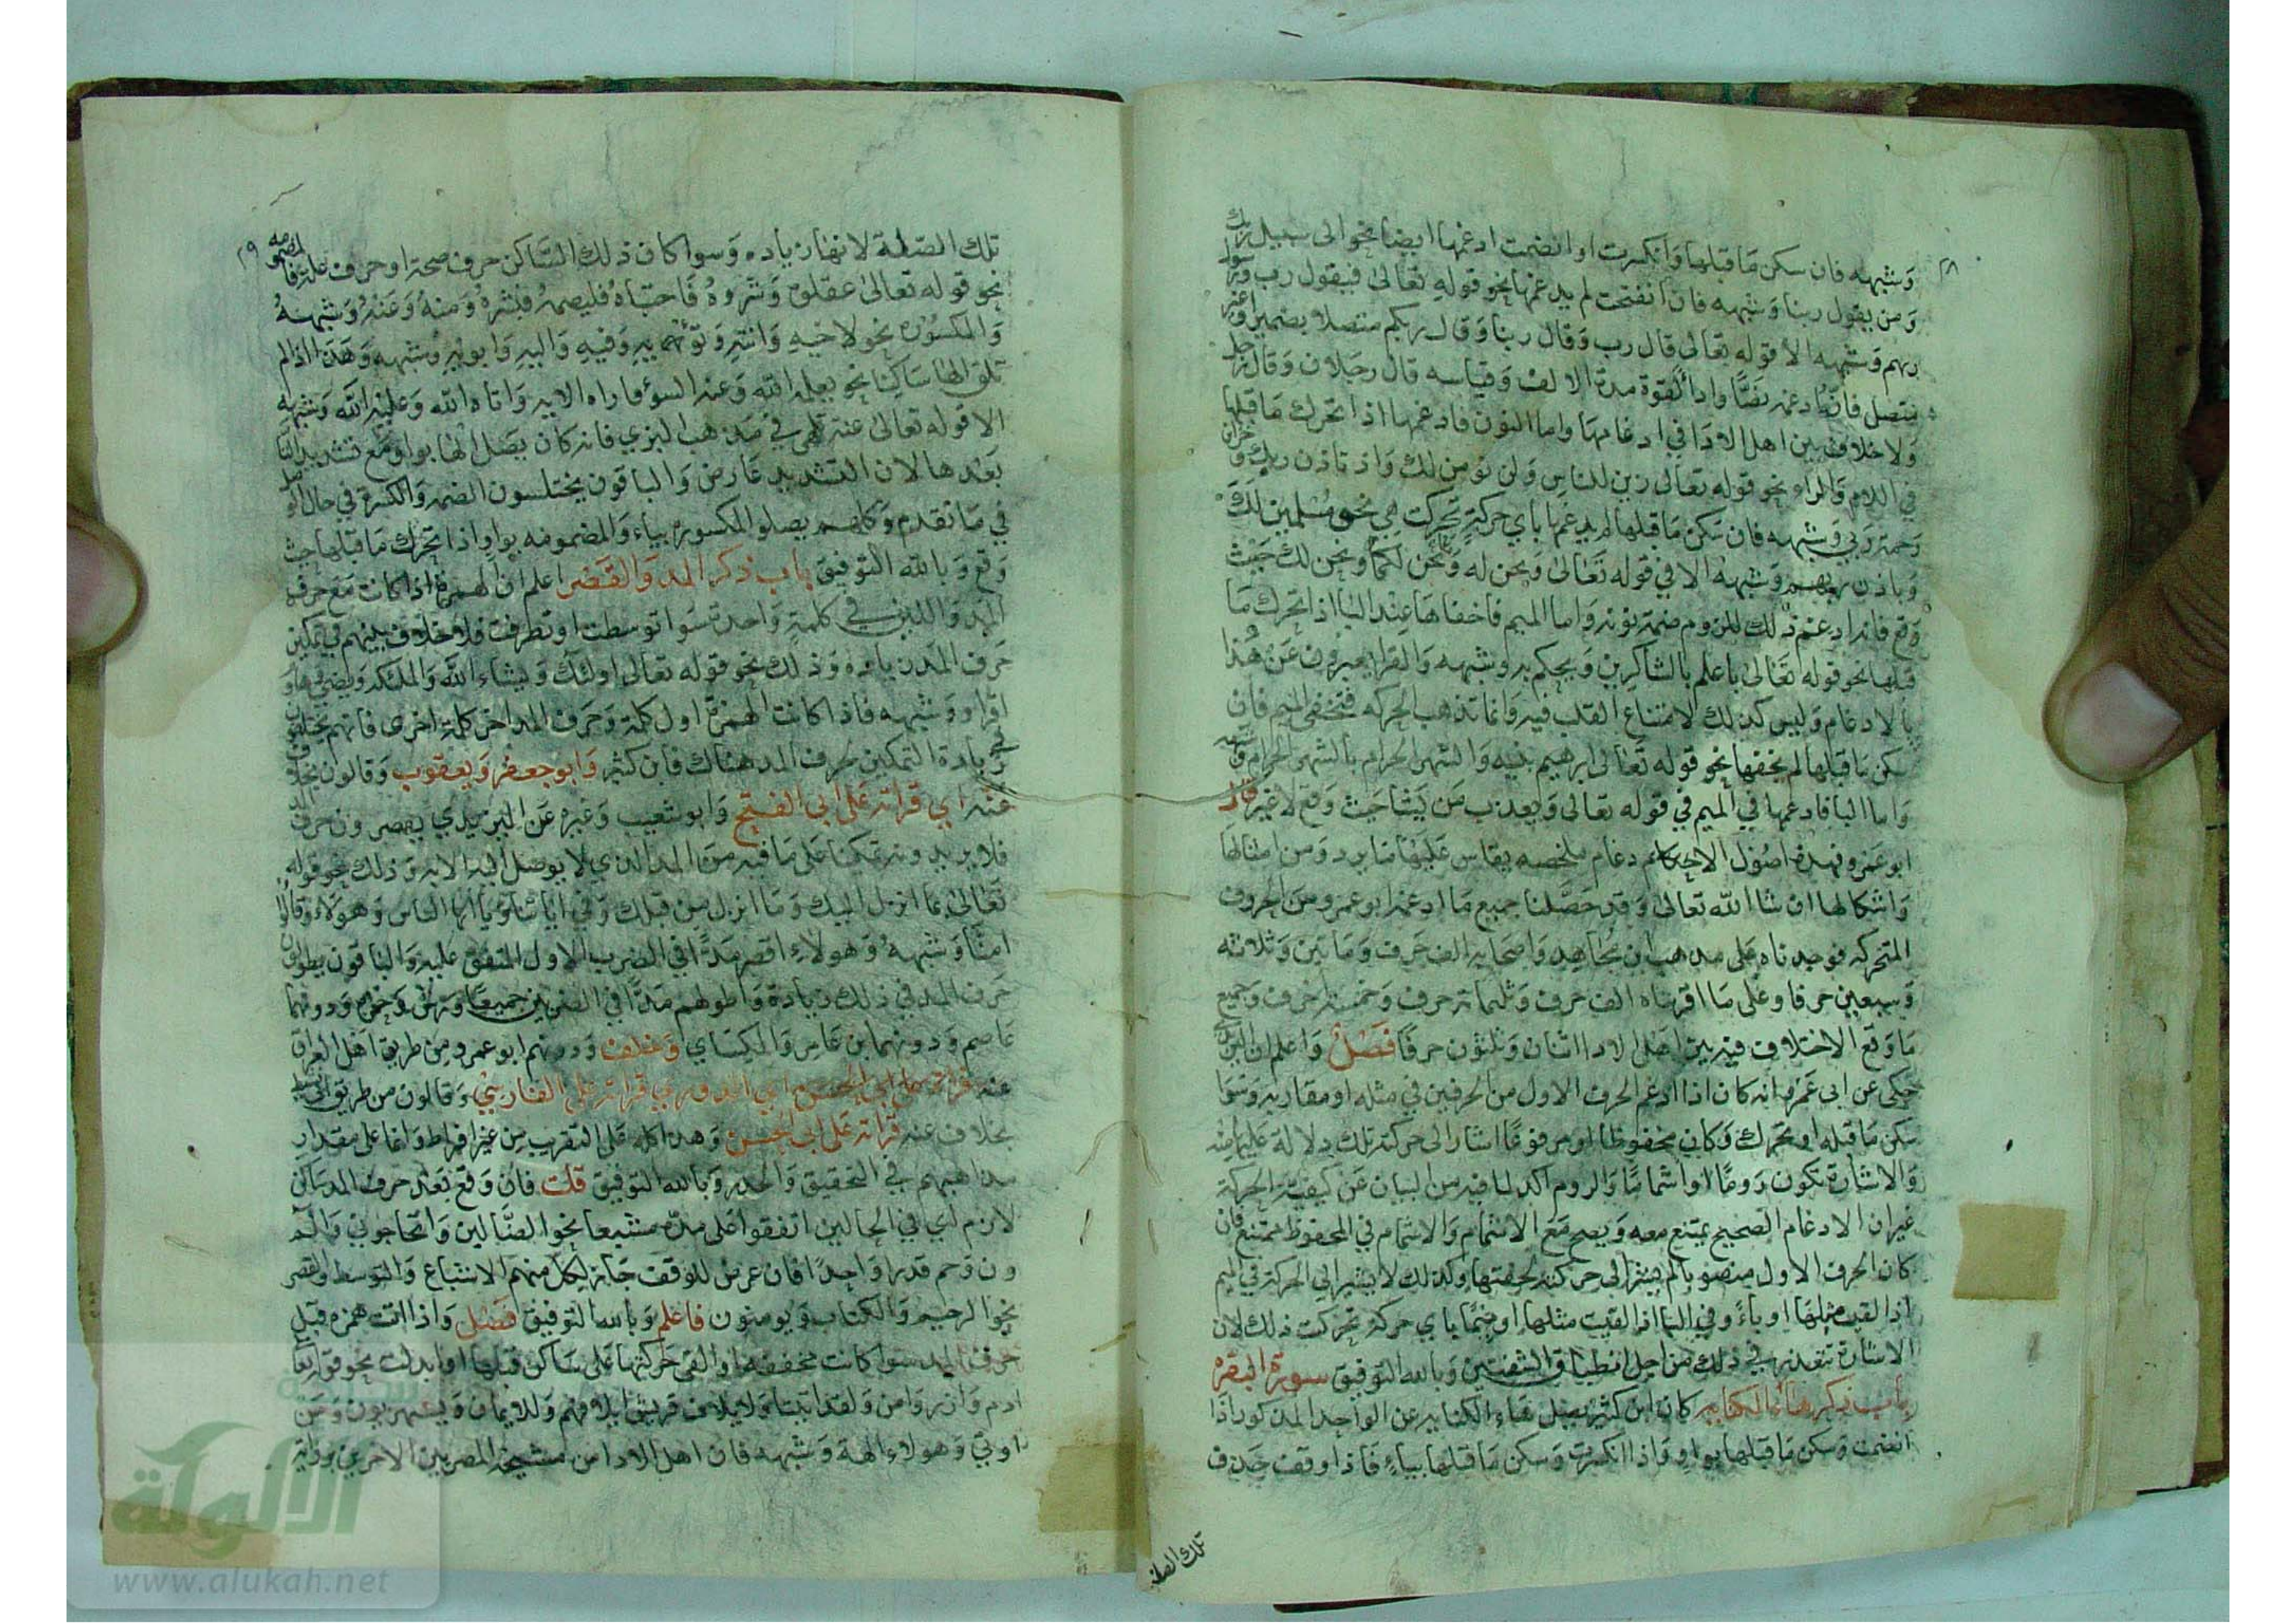 ٢٨
وشبهه فان سكن ما قبلها وانكسرت او انضمت ادغمها ايضا نحو الى سبيل ربك
ومن يقول ربنا وشبهه فان انفتحت لم يدغمها نحو قوله تعالى فيقول رب ورسول
ربهم وشبهه الا قوله تعالى قال رب وقال ربنا وقال ربكم متصلا بضمير او غير
متصل فانه ادغمه نصا واداء لقوة مدة الالف وقياسه قال رجلان وقال رجل
ولا خلاف بين اهل الادا في ادغامها واما النون فادغمها اذا تحرك ما قبلها
في اللام والراء نحو قوله تعالى زين للناس ولن نومن لك واذ تاذن ربك وخزاين
رحمة ربي وشبهه فان سكن ما قبلها لم يدغمها باي حركة تحركت هي نحو مسلمين لك
وباذن ربهم وشبهه الا في قوله تعالى ونحن له ونحن لكما ونحن لك حيث
وقع فانه ادغم ذلك للزوم ضمة نونه واما الميم فاخفاها عند البا اذا تحرك ما
قبلها نحو قوله تعالى باعلم بالشاكرين ويحكم به وشبهه والقرا يعبرون عن هذا
بالادغام وليس كذلك لامتناع القلب فيه وانما تذهب الحركه فتخفى الميم فان
سكن ما قبلها لم يخفها نحو قوله تعالى ابرهيم بنيه والشهر الحرام بالشهر الحرام وشبهه
واما البا فادغمها في الميم في قوله تعالى ويعذب من يشا حيث وقع لا غير قال
ابو عمرو فهذه اصول الادغام ملخصه يقاس عليها ما يرد من امثالها
واشكالها ان شا الله تعالى وقد حصلنا جميع ما ادغمه ابو عمرو من الحروف
المتحركه فوجدناه على مذهب ابن مجاهد واصحابه الف حرف ومايتين وثلاثه
وسبعين حرفا وعلى ما اقريناه الف حرف وثلثماية حرف وخمسة احرف وجميع
ما وقع الاختلاف فيه بين اهل الادا اثنان وثلثون حرفا فصل واعلم ان اليزيدي
حكى عن ابى عمرو انه كان اذا ادغم الحرف الاول من الحرفين في مثله او مقاربه وسوا
سكن ما قبله او تحرك وكان مخفوظا او مرفوعا اشار الى حركته تلك دلالة عليها منه
والاشارة تكون روما او اشماما والروم اكد لما فيه من البيان عن كيفية الحركة
غير ان الادغام الصحيح يمتنع معه ويصح مع الاشمام والاشمام في المخفوظ ممتنع فان
كان الحرف الاول منصوبا لم يشر الى حركته لخفتها وكذلك لا يشير الى الحركة في الميم
اذا لقيت مثلها او باء وفي البا اذا لقيت مثلها او ميما باي حركة تحركت ذلك لان
الاشارة تتعذر في ذلك من اجل انطباق الشفتين وبالله التوفيق سورة البقره
باب ذكر هاء الكنايه كان ابن كثير يصل هاء الكنايه عن الواحد المذكور اذا
انضمت وسكن ما قبلها بواو واذا انكسرت وسكن ما قبلها بياء فاذا وقفت حذف
تلك الصله
٢٩
تلك الصلة لانها زياده وسوا كان ذلك الساكن حرف صحة او حرف علة فالمضمومه
نحو قوله تعالى عقلوه وشروه فاجتباه فليصمه فبشره ومنه وعنه وشبهه
والمكسوره نحو لاخيه وابيه وفيه واليه وابويه وشبهه وهذا اذا لم
تلق الها ساكنا نحو يعلمه الله وعنه السوء فاراه الاية واتاه الله وعليه الله وشبهه
الا قوله تعالى عنه تلهى في مذهب البزي فانه كان يصل الها بواو مع تشديد التا
بعدها لان التشديد عارض والباقون يختلسون الضمه والكسرة في حال الوصل
في ما تقدم وكلهم يصلو المكسوره بياء والمضمومه بواو اذا تحرك ما قبلها حيث
وقع وبالله التوفيق باب ذكر المد والقصر اعلم ان الهمزة اذا كانت مع حرف
المد واللين في كلمة واحدة سوا توسطت او تطرفت فلا خلاف بينهم في تمكين
حرف المد زياده وذلك نحو قوله تعالى اولئك ويشاء الله والملئكه ويضي وهاؤ
اقراو وشبهه فاذا كانت الهمزة اول كلمة وحرف المد اخر كلمة اخرى فانهم يختلفون
في زيادة التمكين لحرف المد هناك فابن كثير وابو جعفر ويعقوب وقالون بخلاف
عنه اي قراته على ابى الفتح وابو شعيب وغيره عن اليزيدي يقصرون حرف المد
فلا يزيدونه تمكينا على ما فيه من المد الذي لا يوصل اليه الا به وذلك نحو قوله
تعالى بما انزل اليك وما انزل من قبلك وفي اياتنا ويا ايها الناس وهولاء وقالوا
امنا وشبهه وهولاء اقصر مدا في الضرب الاول المتفق عليه والباقون يطولون
حرف المد في ذلك زيادة واطولهم مدا في الضربين جميعا ورش وحمزه ودونهما
عاصم ودونهما ابن عامر والكساي وخلف ودونهم ابو عمرو من طريق اهل العراق
عنه قراته على الفارسي وقالون من طريق ابي نشيط
بخلاف عنه قراته على ابى الحسن وهذا كله على التقريب من غير افراط وانما على مقدار
مذاهبهم في التحقيق والحدر وبالله التوفيق قلت فان وقع بعد حرف المد ساكن
لازم اي في الحالين اتفقوا على مده مشبعا نحو الضالين واتحاجوني والم
ون وحم قدرا واحدا فان عرض للوقف جاز لكل منهم الاشباع والتوسط والقصر
نحو الرحيم والكتاب ويومنون فاعلم وبالله التوفيق فصل واذا اتت همزه قبل
حرف المد سوا كانت محققه او القي حركتها على ساكن قبلها او ابدلت نحو قوله تعالى
ادم وازر وامن ولقد اتينا ولايلاف قريش ايلافهم وللايمان ويستهزون ومن
اوتي وهولاء الهة وشبهه فان اهل الادا من مشيخة المصريين الاخرين برواية
الألوكة
www.alukah.net